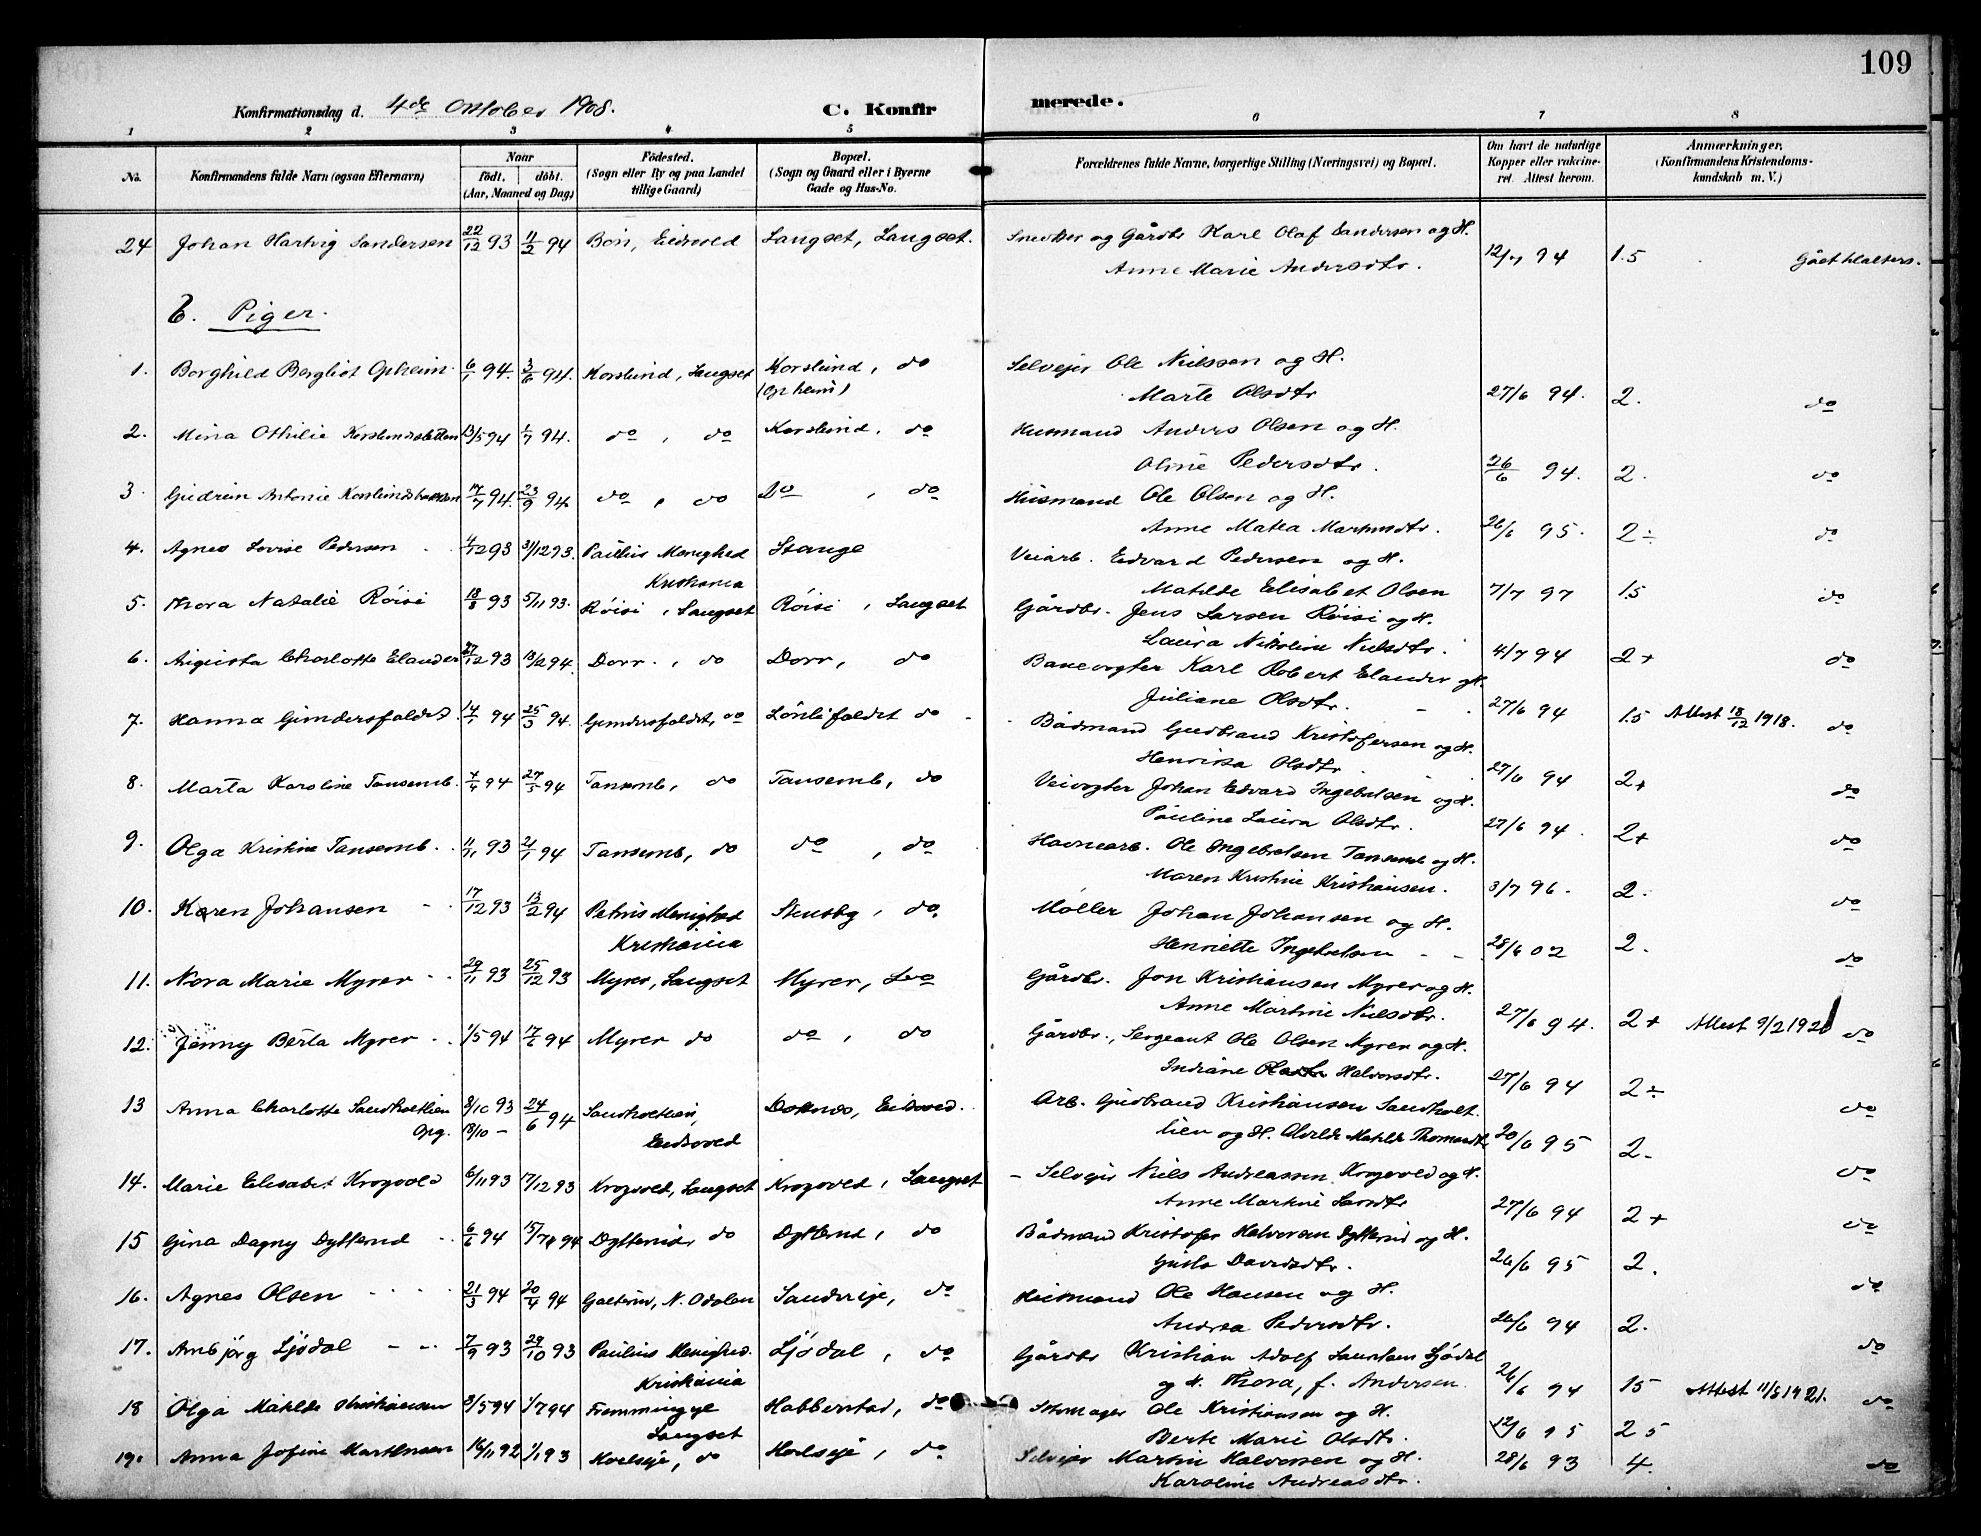 109
Konfirmationsdag d. 4de Oktober 1908.
C. Konfirmerede.
1 2 3 4 5 6 7 8
No.
Konfirmandens fulde Navn (ogsaa Efternavn)
Naar
födt. döbt.
(Aar, Maaned og Dag)
Födested.
(Sogn eller By og paa Landet
tillige Gaard)
Bopæl.
(Sogn og Gaard eller i Byerne
Gade og Hus-No.
Forældrenes fulde Navne, borgerlige Stilling (Næringsvei) og Bopæl.
Om havt de naturlige
Kopper eller vakcine-
ret. Attest herom.
Anmærkninger.
(Konfirmandens Kristendoms-
kundskab m. V.)
24 Johan Hartvig Sandersen 22/12 93 11/2 94 Bön, Eidsvold Langset, Langset. Snedker og Gårdbr Karl Olaf Sandersen og H.
Anne Marie Andersdtr. 12/7 94 1.5
Piger.
1. Borghild Bergliot Opheim 6/1 94. 3/6 94. Korslund, Langset Korslund, do Selvejer Ole Nielssen og H.
(Opheim)
Marte Olsdtr 27/6 94. 2. do
2. Mina Othilie Korslundsletten 13/5 94 1/7 94. do, do Korslund, do Husmand Anders Olsen og H.
Oline Pedersdtr. 26/6 94. 2. do
3. Gudrun Antonie 17/7 94. 23/9 94 do, do Do, do Husmand Ole Olsen og H.
Anne Matea Martinsdtr. 26/6 95. 2÷ do
4. Agnes Lovise Pedersen 4/12 93 31/12 93. Paulus Menighed Stange Veiarb. Edvard Pedersen og H.
Kristiania
Matilde Elisabet Olsen 7/7 97 1.5 do
5. Thora Natalie Röisi 18/8 93 5/11 93. Röisi, Langset Röisi, Langset Gårdbr. Jens Larsen Röisi og H.
Laura Nikoline Nielsdtr. 4/7 94 2+ do
6. Augusta Charlotte Elander 27/12 93 18/2 94. Dorr, do Dorr, do Banevogter Karl Robert Elander og H.
Juliane Olsdtr. 27/6 94 1.5 Attest 18/12 1918. do
7. Hanna Gundersfaldet 14/1 94 25/3 94. Gundersfaldet, do Lönlifaldet do Bådmand Gudbrand Kristofersen og H.
Henrikka Olsdtr 27/6 94 2+ do
8. Marta Karoline Tansemb. 7/4 94 27/5 94 Tansemb, do Tansemb, do Veivogter Johan Edvard Ingebretsen og H.
Pauline Laura Olsdtr. 27/6 94. 2+ do
9. Olga Kristine Tansemb. 11/11 93 21/1 94 Tansemb, do do, do Havnearb. Ole Ingebretsen Tansemb og H.
Maren Kristine Kristiansen. 3/7 96. 2. do
10. Karen Johansen 17/12 93 13/2 94 Petrus Menighed Stensby, do Møller Johan Johansen og H.
Kristiania
Henriette Ingebretsen 28/6 02 2. do
11. Nora Marie Myrer 29/11 93 25/12 93 Myrer, Langset Myrer, do Gårdbr. Jon Kristiansen Myrer og H.
Anne Martine Nielsdtr. 27/6 94. 2+ Attest 9/2 1920 do
12. Jenny Berta Myrer 1/5 94 17/6 94 Myrer do do, do Gårdbr., Sergeant Ole Olsen Myrer og H.
Indiane Halvorsdtr. 27/6 94 2÷ do
13 Anna Charlotte Sandholtlien 8/10 93 24/6 94 Sandholtlien, Eidsvold. Arb. Gudbrand Kristiansen Sandholt
Opg. 13/10 — Eidsvold
lien og H. Matilde Thomasdtr 20/6 95 2. do
14. Marie Elisabet Krogvold 6/11 93 17/12 93 Krogvold, Langset Krogvold, Langset Selvejer Niels Andreassen Krogvold og H.
Anne Martine Larsdtr 27/6 94 2+ do
15 Gina Dagny Dytterud 6/6 94 15/7 94 Dytterud, do Dytterud, do Bådmand Kristofer Halvorsen Dytterud og H.
Gusta Davidsdtr. 26/6 95 2. do
16. Agnes Olsen 21/3 94 20/4 94 N. Odalen do Husmand Ole Hansen og H.
Andrea Pedersdtr. 26/6 94 2. do
17. Ambjörg Ljödal 7/9 93 29/10 93 Paulus Menighed. Ljödal, do Gårdbr Kristian Adolf Lauritsen Ljödal
Kristiania
og H. Thora, f. Andersen 26/6 94 1.5 Attest 11/8 1921. do
18 Olga Matilde Kristiansen 3/5 94 1/7 94 Habberstad, do Skomager Ole Kristiansen og H.
Langset
Berte Marie Olsdtr. 12/6 95 2.5
19. Anna Jofine Martinsen 14/11 92 1/1 93 do do Selvejer Martin Halvorsen og H.
Karoline Andreasdtr. 28/6 93 4. do